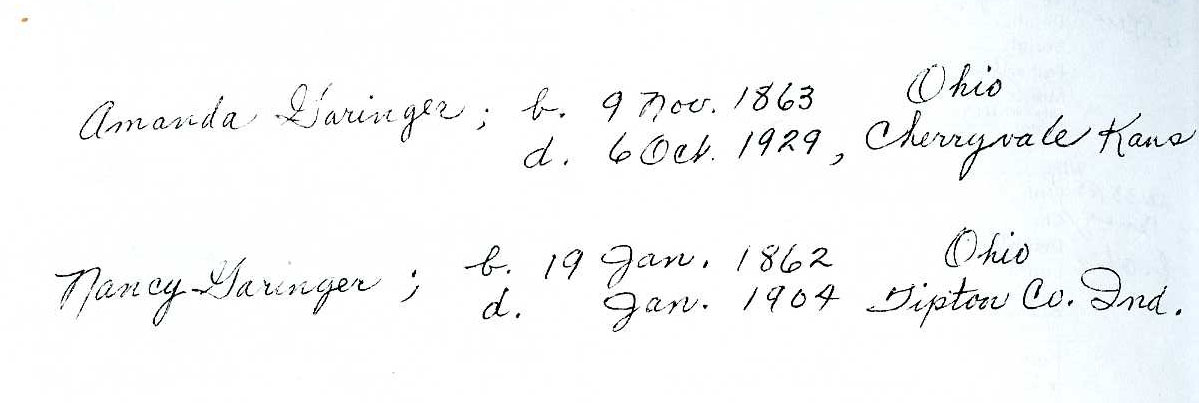 Amanda Garinger; b. 9 Nov. 1863 Ohio
d. 6 Oct. 1929, Cherryvale Kans
Nancy Garinger; b. 19 Jan. 1862 Ohio
d. Jan. 1904 Tipton Co. Ind.